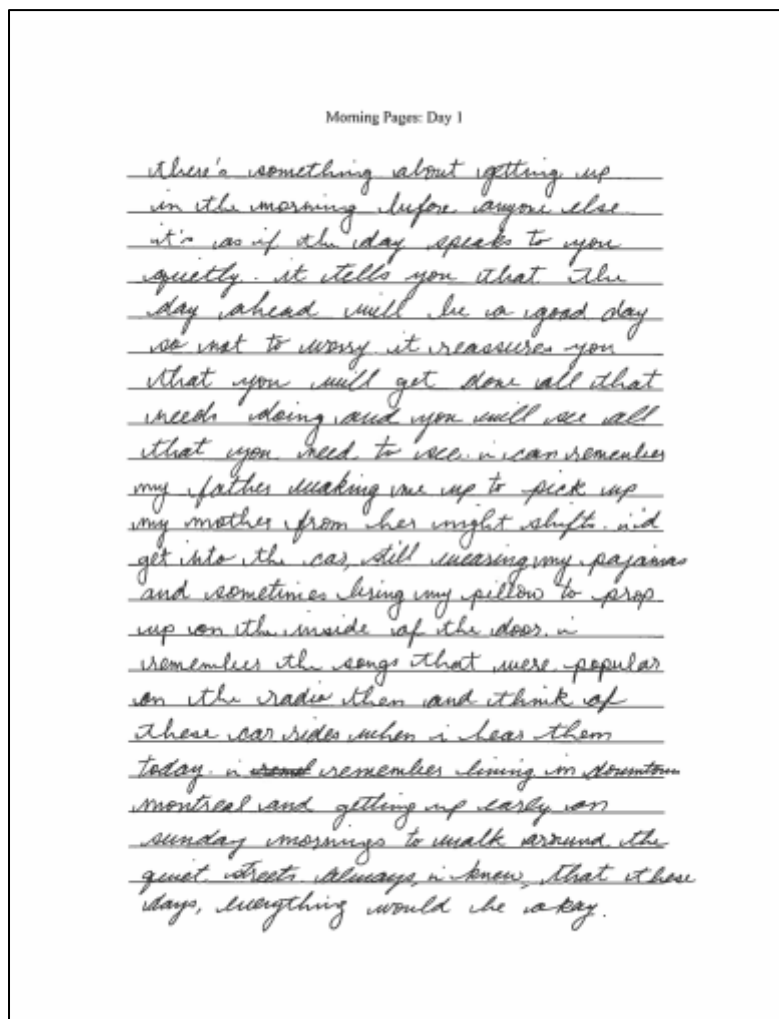 Morning Pages: Day 1
there's something about getting up
in the morning before anyone else.
it's as if the day speaks to you
quietly. it tells you that the
day ahead will be a good day
so not to worry. it reassures you
that you will get done all that
needs doing and you will see all
that you need to see. i can remember
my father waking me up to pick up
my mother from her night shifts. i'd
get into the car, still wearing my pajamas
and sometimes bring my pillow to prop
up on the inside of the door. i
remember the songs that were popular
on the radio then and think of
these car rides when i hear them
today. i remember living in downtown
montreal and getting up early on
sunday mornings to walk around the
quiet streets. Always, i knew, that these
days, everything would be okay.